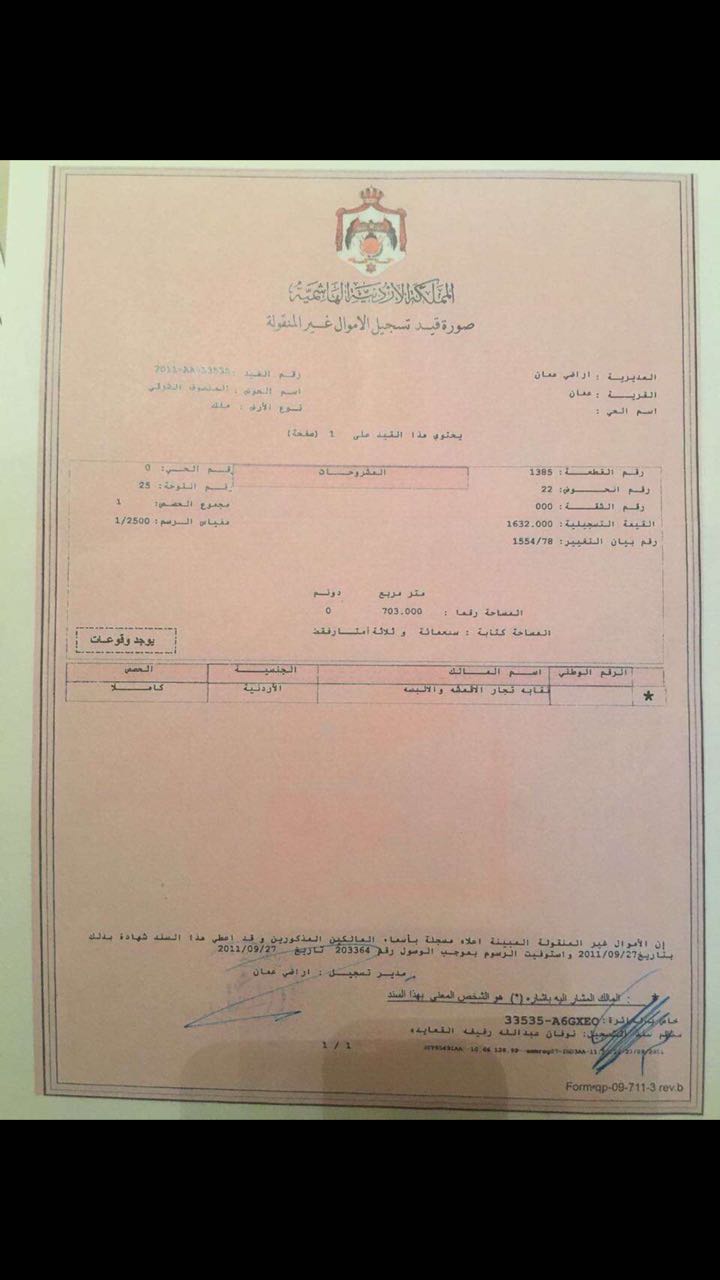 المملكة الأردنية الهاشمية
صورة قيد تسجيل الاموال غير المنقولة
المديرية : اراضي عمان
رقم القيد :
القرية : عمان
اسم الحوض : الشرقي
اسم الحي :
نوع الأرض : ملك
يحتوي هذا القيد على 1 (صفحة)
رقم القطعة : 1385
المشروحات
رقم الحي: 0
رقم الحوض : 22
رقم اللوحة: 25
رقم الشقة : 000
مجموع الحصص: 1
القيمة التسجيلية : 1632.000
مقياس الرسم: 1/2500
رقم بيان التغيير: 1554/78
متر مربع دونم
المساحة رقما : 703.000 0
المساحة كتابة : سبعمائة و ثلاثة أمتار فقط
يوجد وقوعات
الرقم الوطني اسم المالك الجنسية الحصص
* نقابه تجار الاقمشه والالبسه الأردنية كاملا
إن الأموال غير المنقولة المبينة اعلاه مسجلة بأسماء المالكين المذكورين و قد اعطي هذا السند شهادة بذلك
بتاريخ 2011/09/27 واستوفيت الرسوم بموجب الوصول رقم 203364 تاريخ 2011/09/27
مدير تسجيل : اراضي عمان
* : المالك المشار اليه باشاره (*) هو الشخص المعني بهذا السند
خاص بالدائرة : 33535-A6GXEO
منظم سند التسجيل: نوفان عبدالله رفيفه القعايده
1 / 1
Form-qp-09-711-3 rev.b